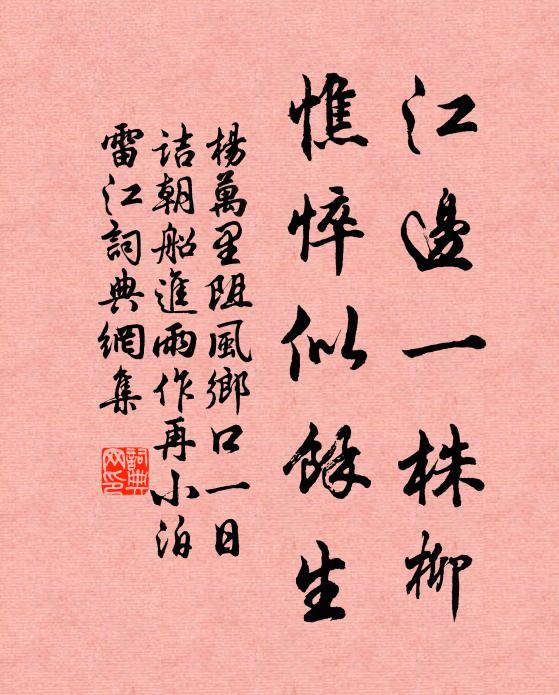 江邊一株柳
憔悴似餘生
楊萬里阻風鄉口一日
詰朝船進雨作再小泊
雷江詞典網集
詞典網印